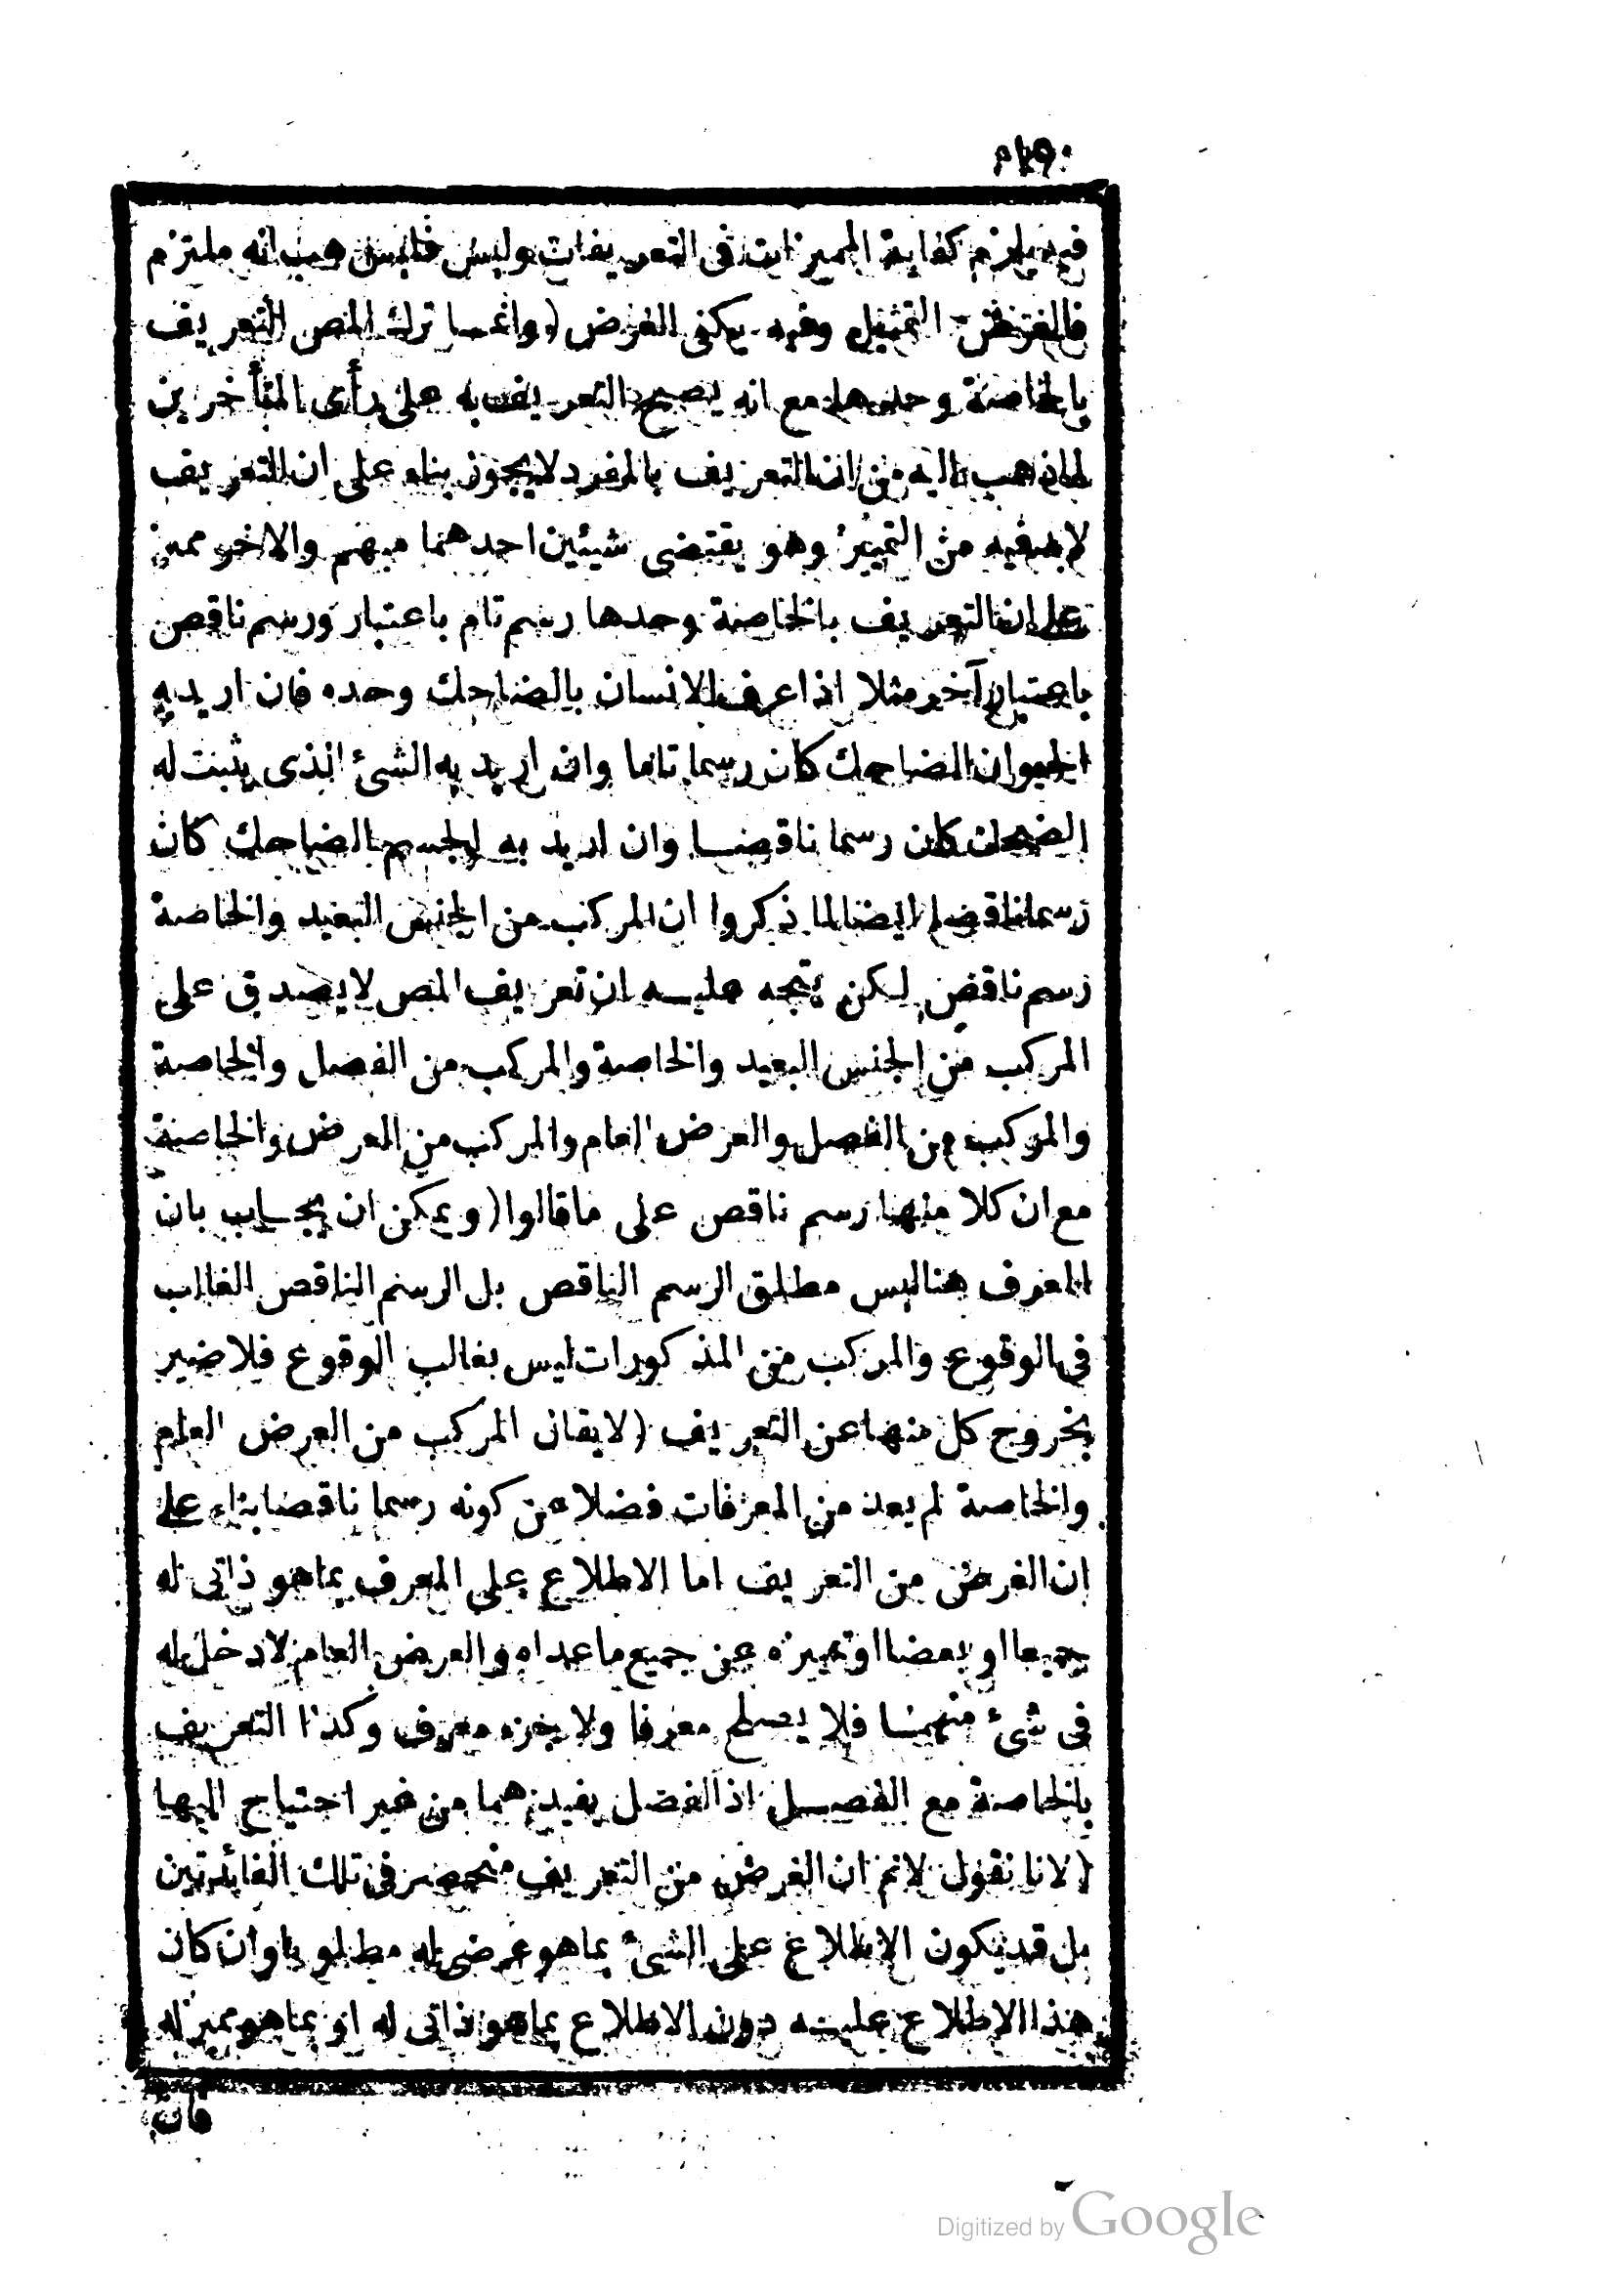 فيه يلزم كفاية المميزات فى التعريفات وليس فليس هب انه ملتزم
فالغرض التمثيل وفيه يكفى الفرض (وانما ترك المص التعريف
بالخاصة وحدها مع انه يصح التعريف به على رأى المتأخرين
لماذهب اليه من ان التعريف بالمفرد لايجوز بناء على ان التعريف
لابدفيه من التمييز وهو يقتضى شيئين احدهما مبهم والاخر مميز
على ان التعريف بالخاصة وحدها رسم تام باعتبار ورسم ناقص
باعتبار آخر مثلا اذا عرف الانسان بالضاحك وحده فان اريدبه
الحيوان الضاحك كان رسما تاما وان اريد به الشئ الذى يثبت له
الضحك كان رسما ناقصا وان اريد به الجسم الضاحك كان
رسما ناقصا ايضا لما ذكروا ان المركب من الجنس البعيد والخاصة
رسم ناقص لكن يتجه عليه ان تعريف المص لايصدق على
المركب من الجنس البعيد والخاصة والمركب من الفصل والخاصة
والمركب من الفصل والعرض العام والمركب من العرض والخاصة
مع ان كلا منها رسم ناقص على ماقالوا (ويمكن ان يجاب بان
المعرف هنا ليس مطلق الرسم الناقص بل الرسم الناقص الغالب
فى الوقوع والمركب من المذكورات ليس بغالب الوقوع فلاضير
بخروج كل منها عن التعريف (لايقال المركب من العرض العام
والخاصة لم يعد من المعرفات فضلا عن كونه رسما ناقصا بناء على
ان الغرض من التعريف اما الاطلاع على المعرف بماهو ذاتى له
جميعا او بعضا او تمييزه عن جميع ماعداه والعرض العام لادخل له
فى شئ منهما فلا يصلح معرفا ولا جزء معرف وكذا التعريف
بالخاصة مع الفصل اذ الفصل يفيدهما من غير احتياج اليها
(لانا نقول لانم ان الغرض من التعريف منحصر فى تلك الفائدتين
بل قد يكون الاطلاع على الشئ بماهو عرضى له مطلوبا وان كان
هذا الاطلاع عليه دون الاطلاع بماهو ذاتى له او بماهو مميز له
فان
Digitized by Google